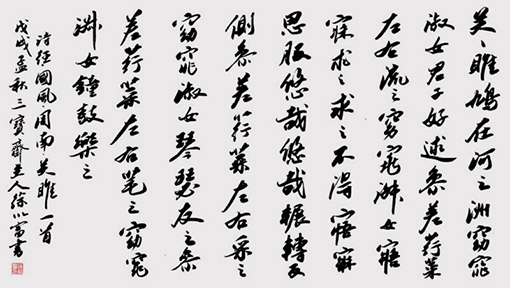 关〻雎鳩在河之洲窈窕
淑女君子好逑參差荇菜
左右流之窈窕淑女寤
寐求之求之不得寤寐
思服悠哉悠哉輾轉反
側參差荇菜左右采之
窈窕淑女琴瑟友之參
差荇菜左右芼之窈窕
淑女鐘鼓樂之
詩經國風·周南关雎一首
戊戌孟秋三寶齋主人徐書